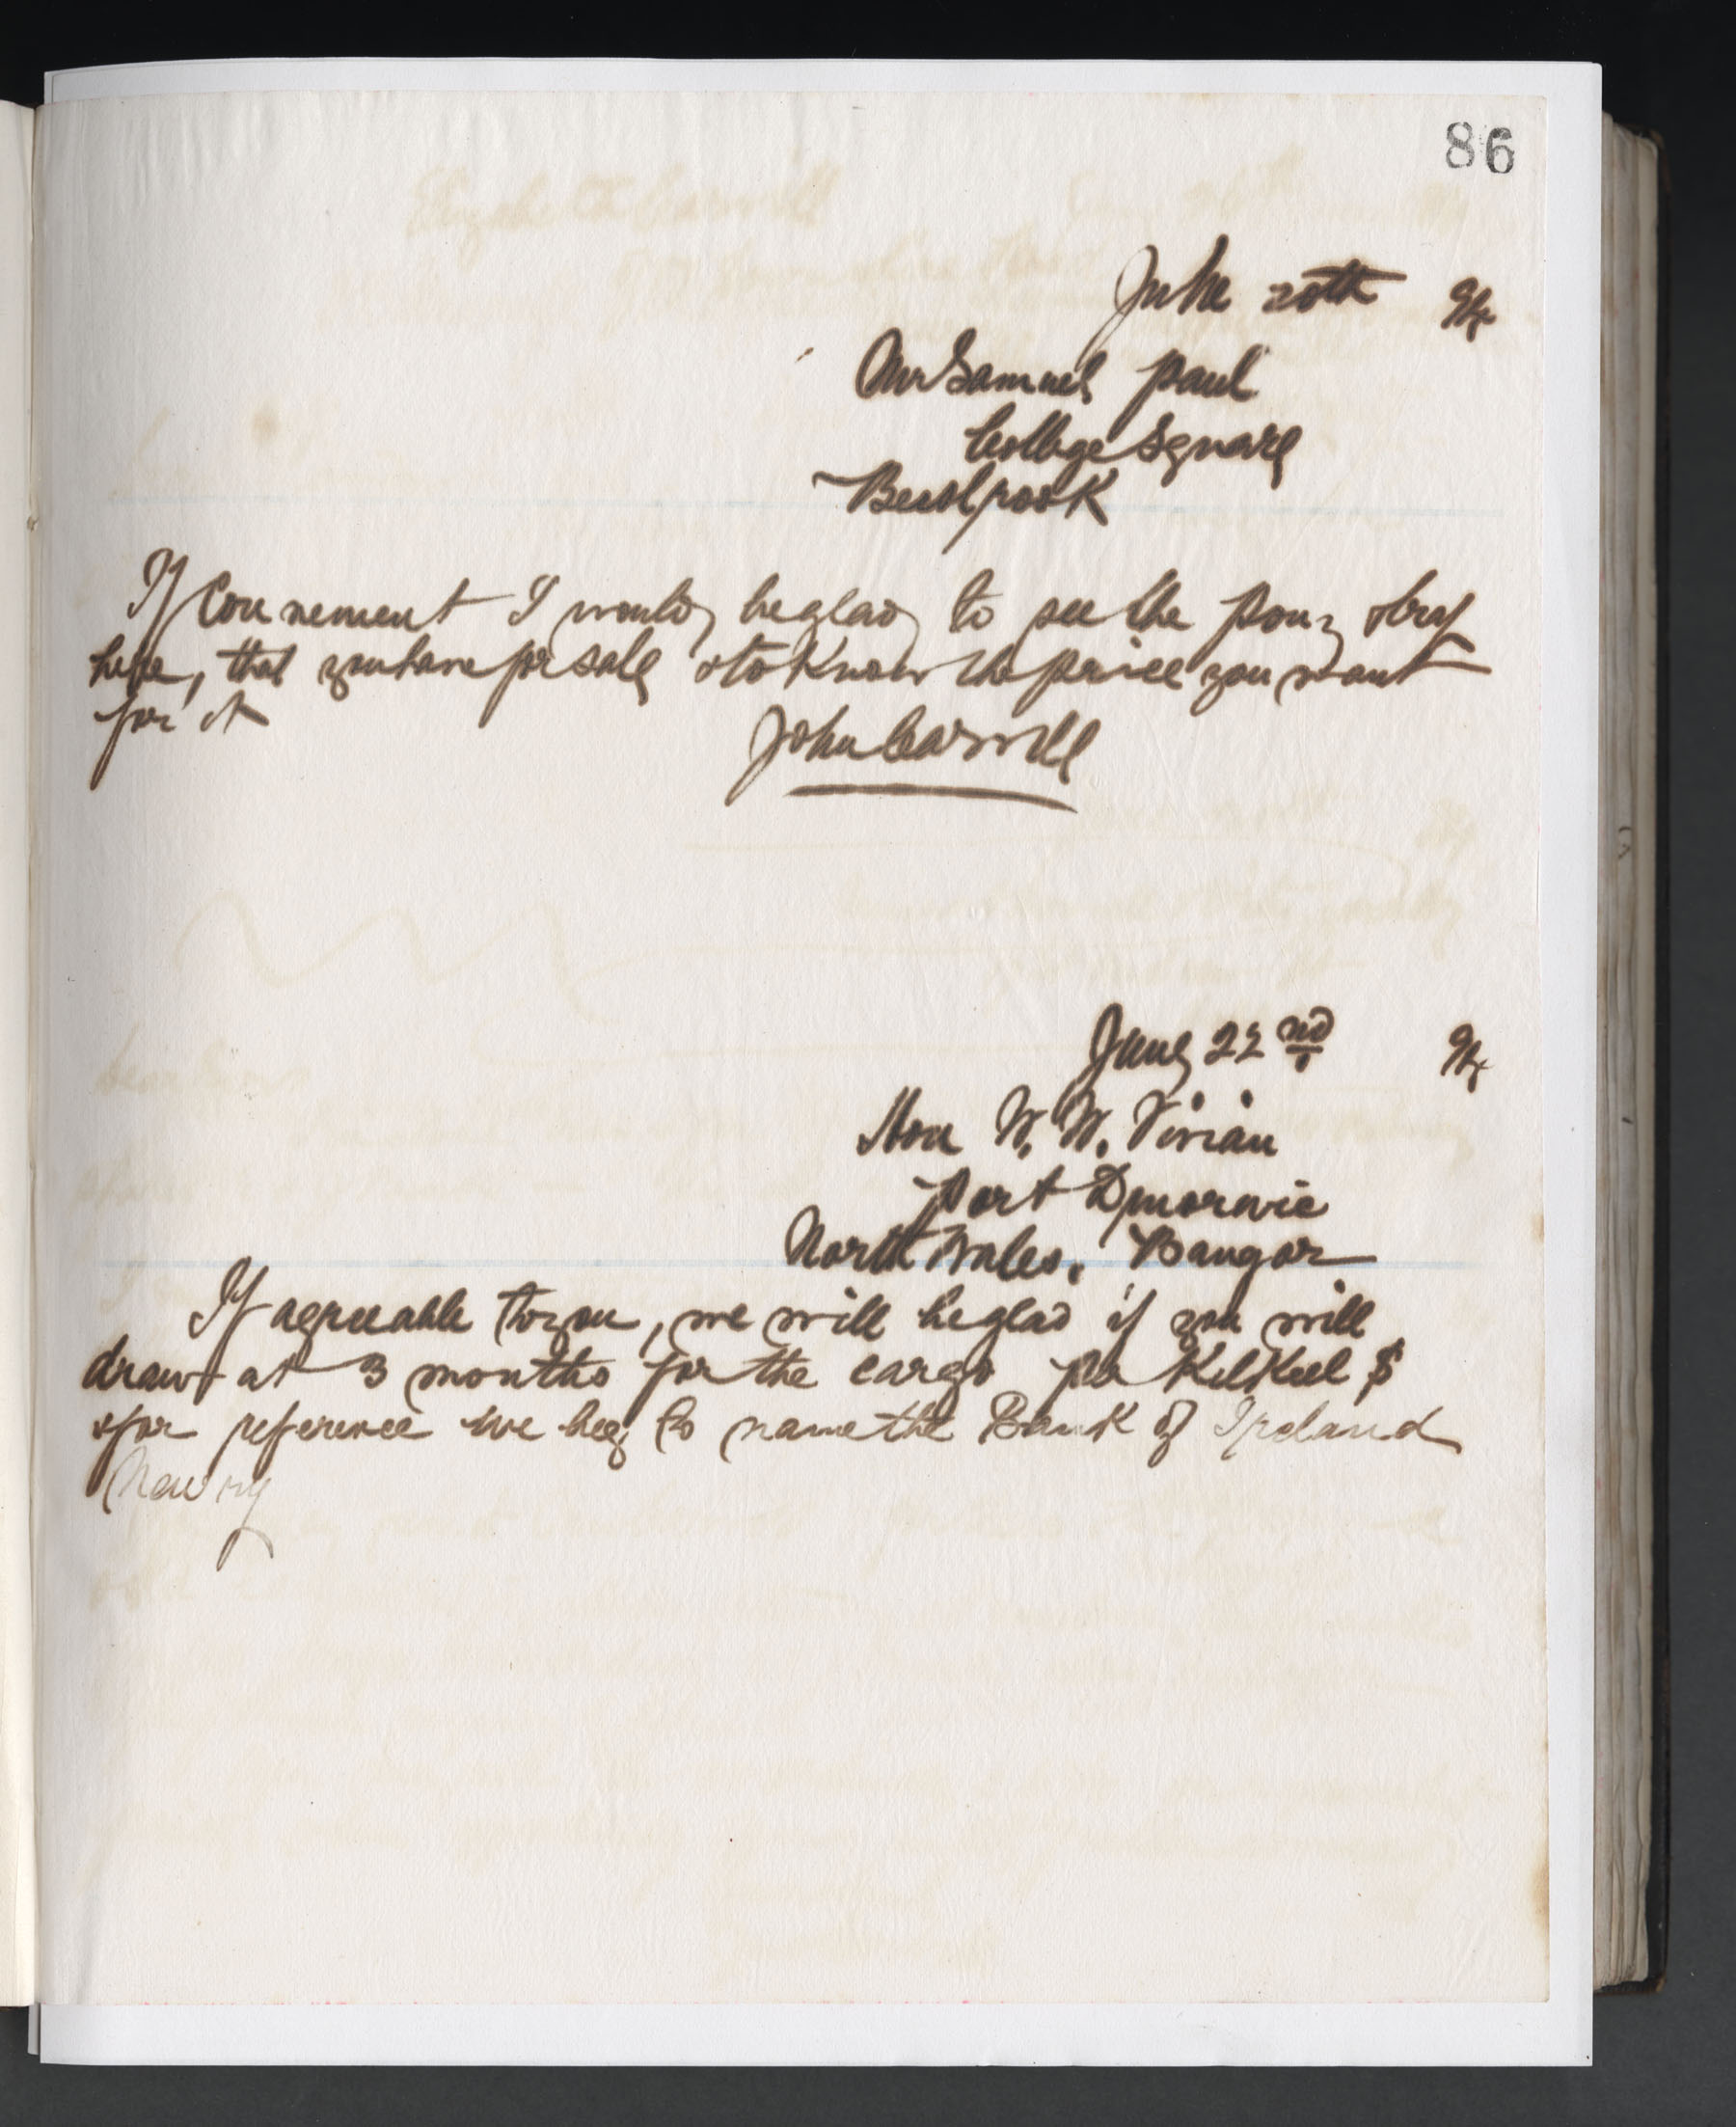 86
June 20th 94
Mr Samuel Paul
College Square
Bessbrook
If convenient I would be glad to see the pony & try
here, that you have for sale & to know the price you want
for it
John Carvill
June 22nd 94
Hon W. W. Vivian
Port Dinorwic
North Wales. Bangor
If agreeable to you, we will be glad if you will
draw at 3 months for the cargo per Kilkeel $
& for reference we beg to name the Bank of Ireland
Newry